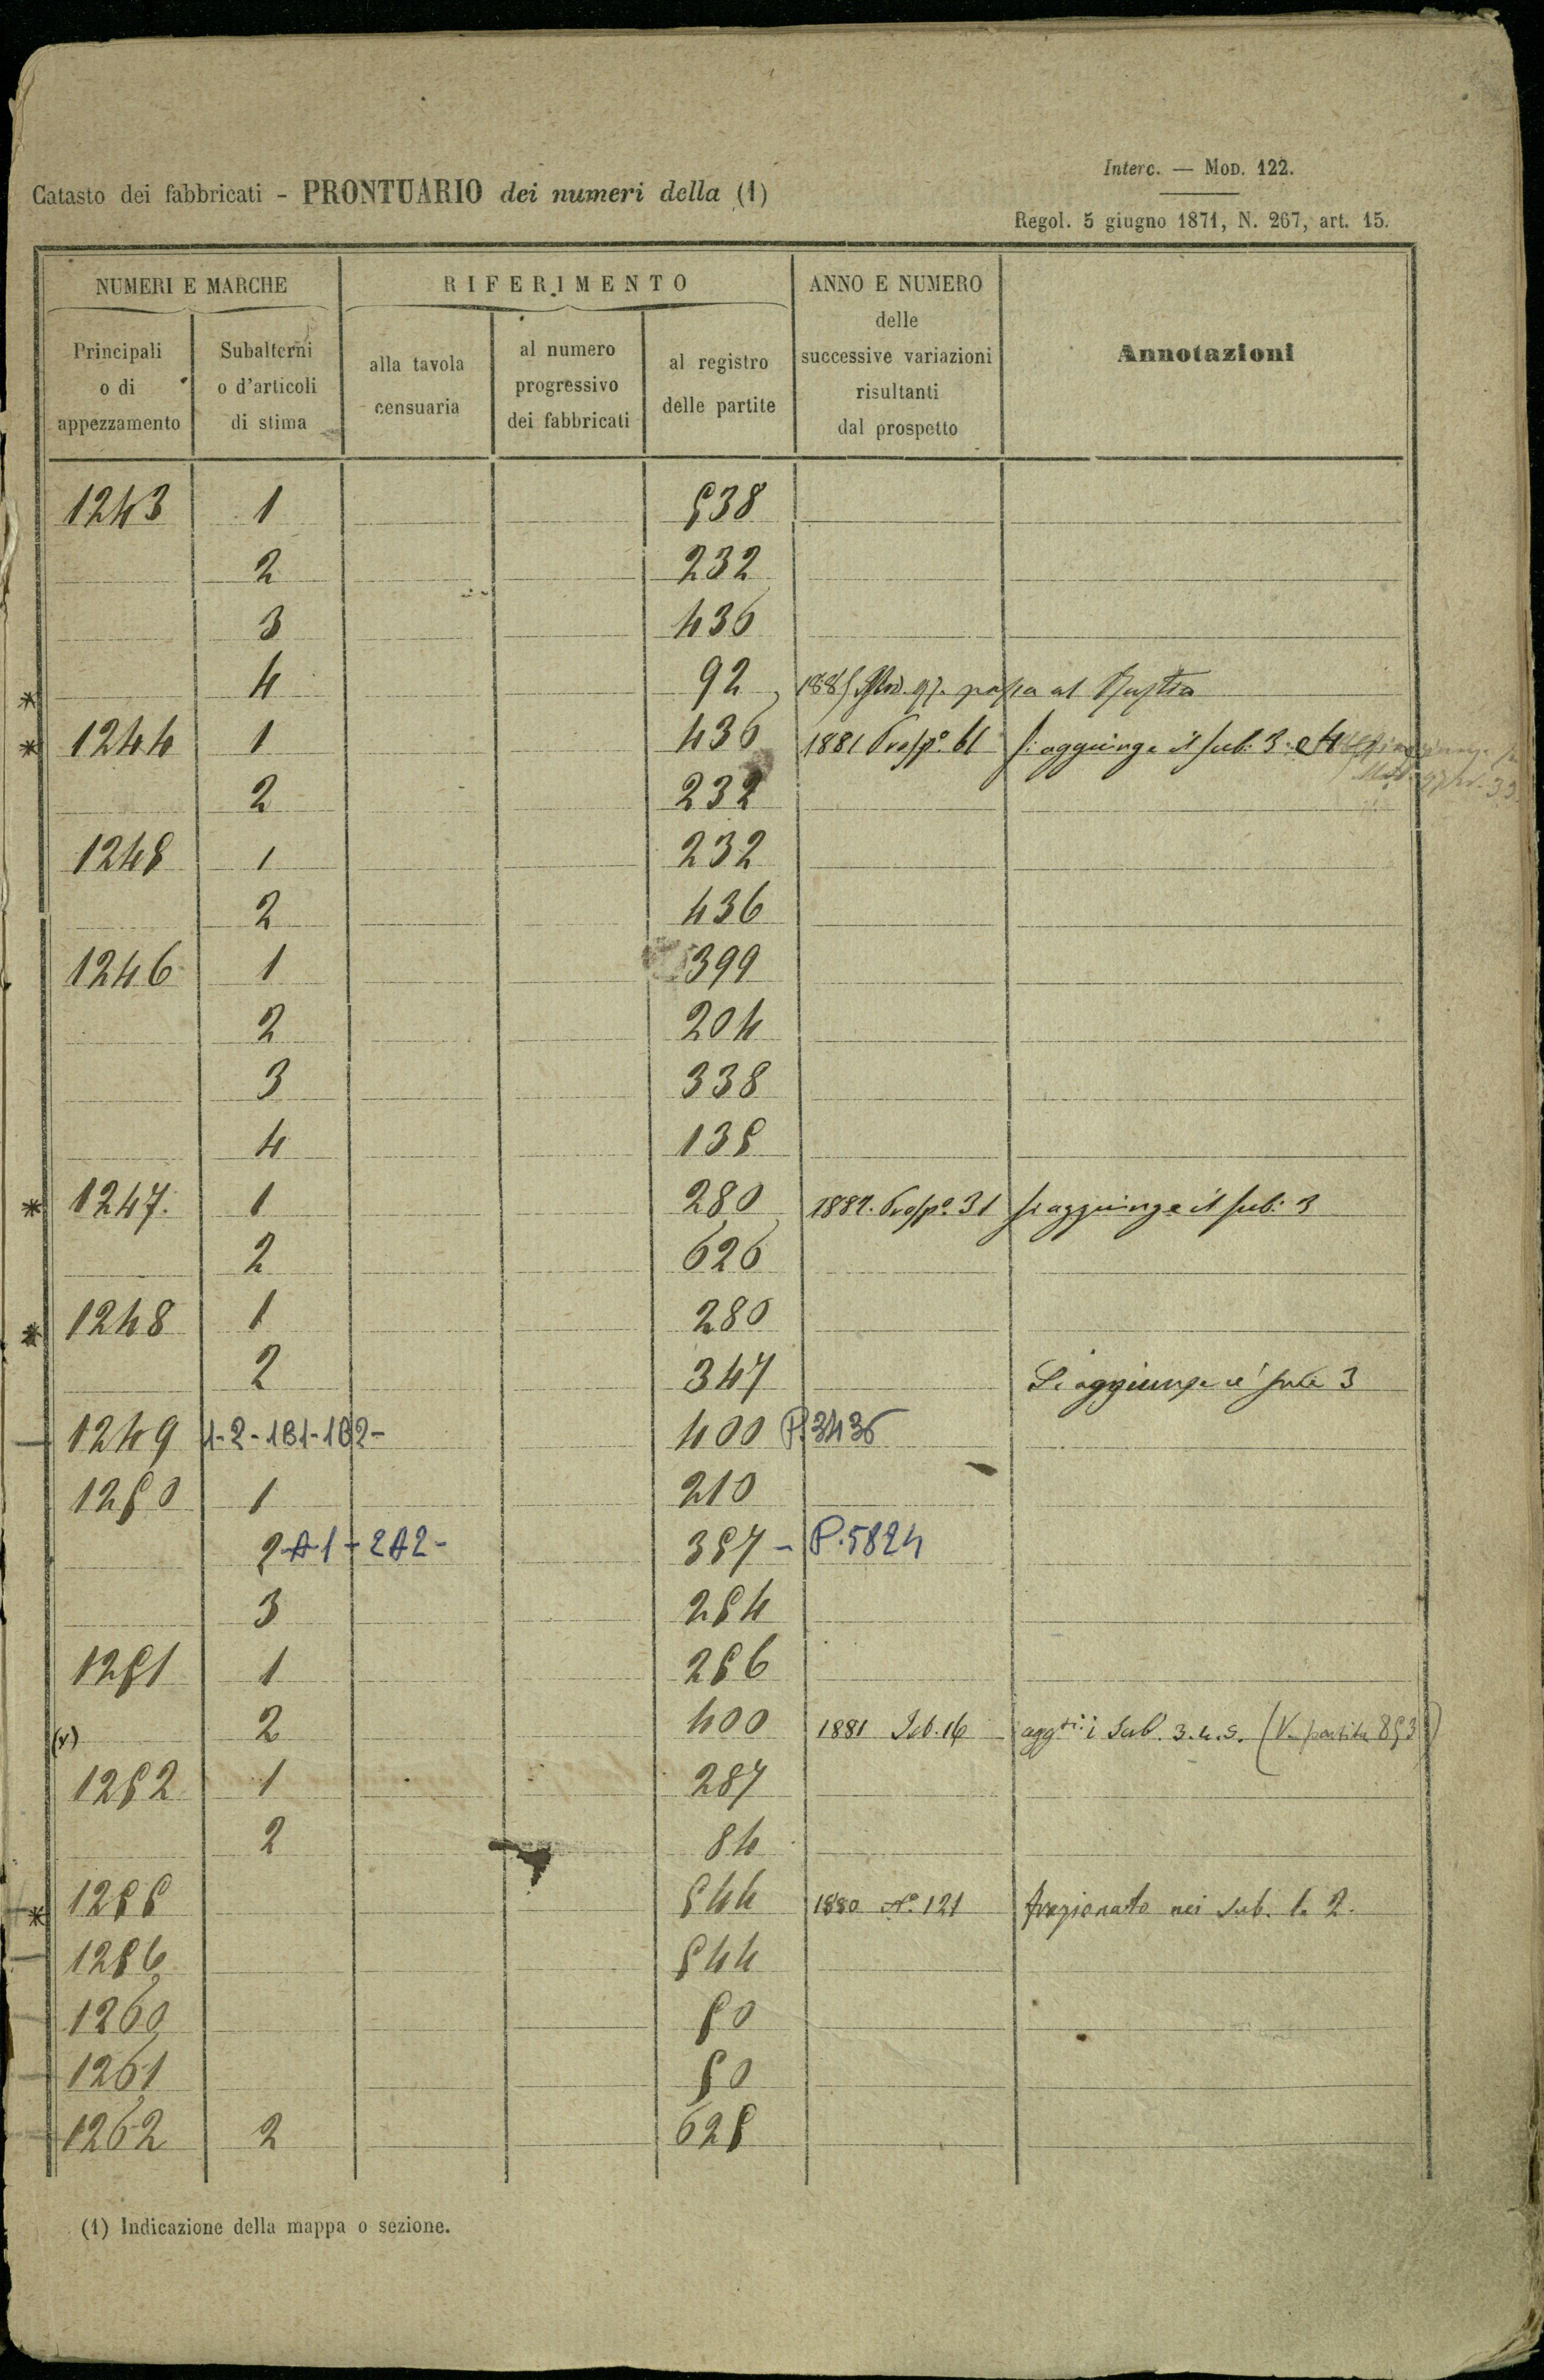 Interc. — Mod. 122.
Catasto dei fabbricati - PRONTUARIO dei numeri della (1)
Regol. 5 giugno 1871, N. 267, art. 15.
NUMERI E MARCHE RIFERIMENTO ANNO E NUMERO delle successive variazioni risultanti dal prospetto Annotazioni
Principali o di appezzamento Subalterni o d'articoli di stima alla tavola censuaria al numero progressivo dei fabbricati al registro delle partite
1243 1 538
2 232
3 436
* 4 92 1885 Mod. 97. passa al
* 1244 1 436 1881 Prosp.o 61 si aggiunge il sub. 3 e 4
2 232
1245 1 232
2 436
1246 1 399
2 204
3 338
4 135
* 1247. 1 280 1882. Prosp.o 31 si aggiunge il sub. 3
2 626
* 1248 1 280
2 347 Si aggiunge il sub 3
1249 1-2-1B1-1B2- 400 P.3436
1250 1 210
2-A1-2A2- 357 - P.5824
3 254
1251 1 256
(v) 2 400 1881 16 agg.ti i Sub. 3.4.5. (V. partita 853)
1252 1 287
2 84
* 1255 544 1880 N.o 121 frazionato nei sub. 1. 2.
1256 544
1260 50
1261 50
1262 2 625
(1) Indicazione della mappa o sezione.